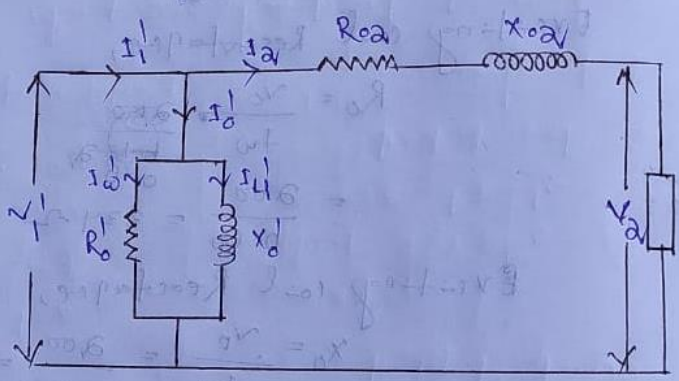 I₁' I₂ R₀₂ X₀₂
I₀'
Iω' Iμ'
V₁' R₀' X₀' V₂